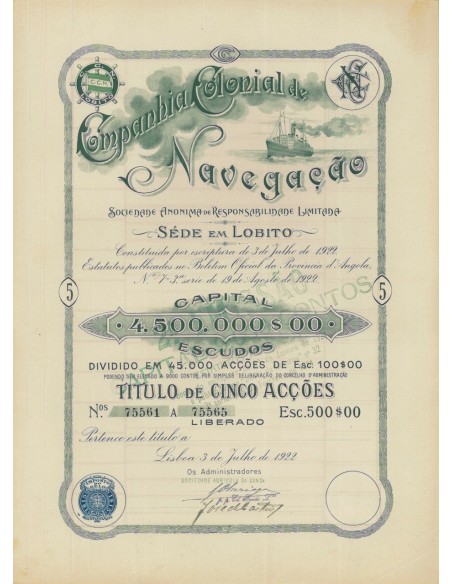 C.C.N.
LOBITO
Companhia Colonial de
Navegação
SOCIEDADE ANONIMA DE RESPONSABILIDADE LIMITADA
SÉDE EM LOBITO
Constituida por escriptura de 3 de Julho de 1922
Estatutos publicados no Boletim Oficial da Provincia d'Angola,
Nº 7-3ª serie de 19 de Agosto de 1922
5
5
CAPITAL
4.500.000$00
ESCUDOS
DIVIDIDO EM 45.000 ACÇÕES DE Esc. 100$00
PODENDO SER ELEVADO A 9000 CONTOS POR SIMPLES DELIBERAÇÃO DO CONCELHO D'ADMINISTRAÇÃO
TITULO DE CINCO ACÇÕES
Nos 75561 A 75565 Esc. 500$00
LIBERADO
Pertence este titulo a
Lisboa 3 de Julho de 1922
Os Administradores
SOCIEDADE AGRICOLA DA GANDA